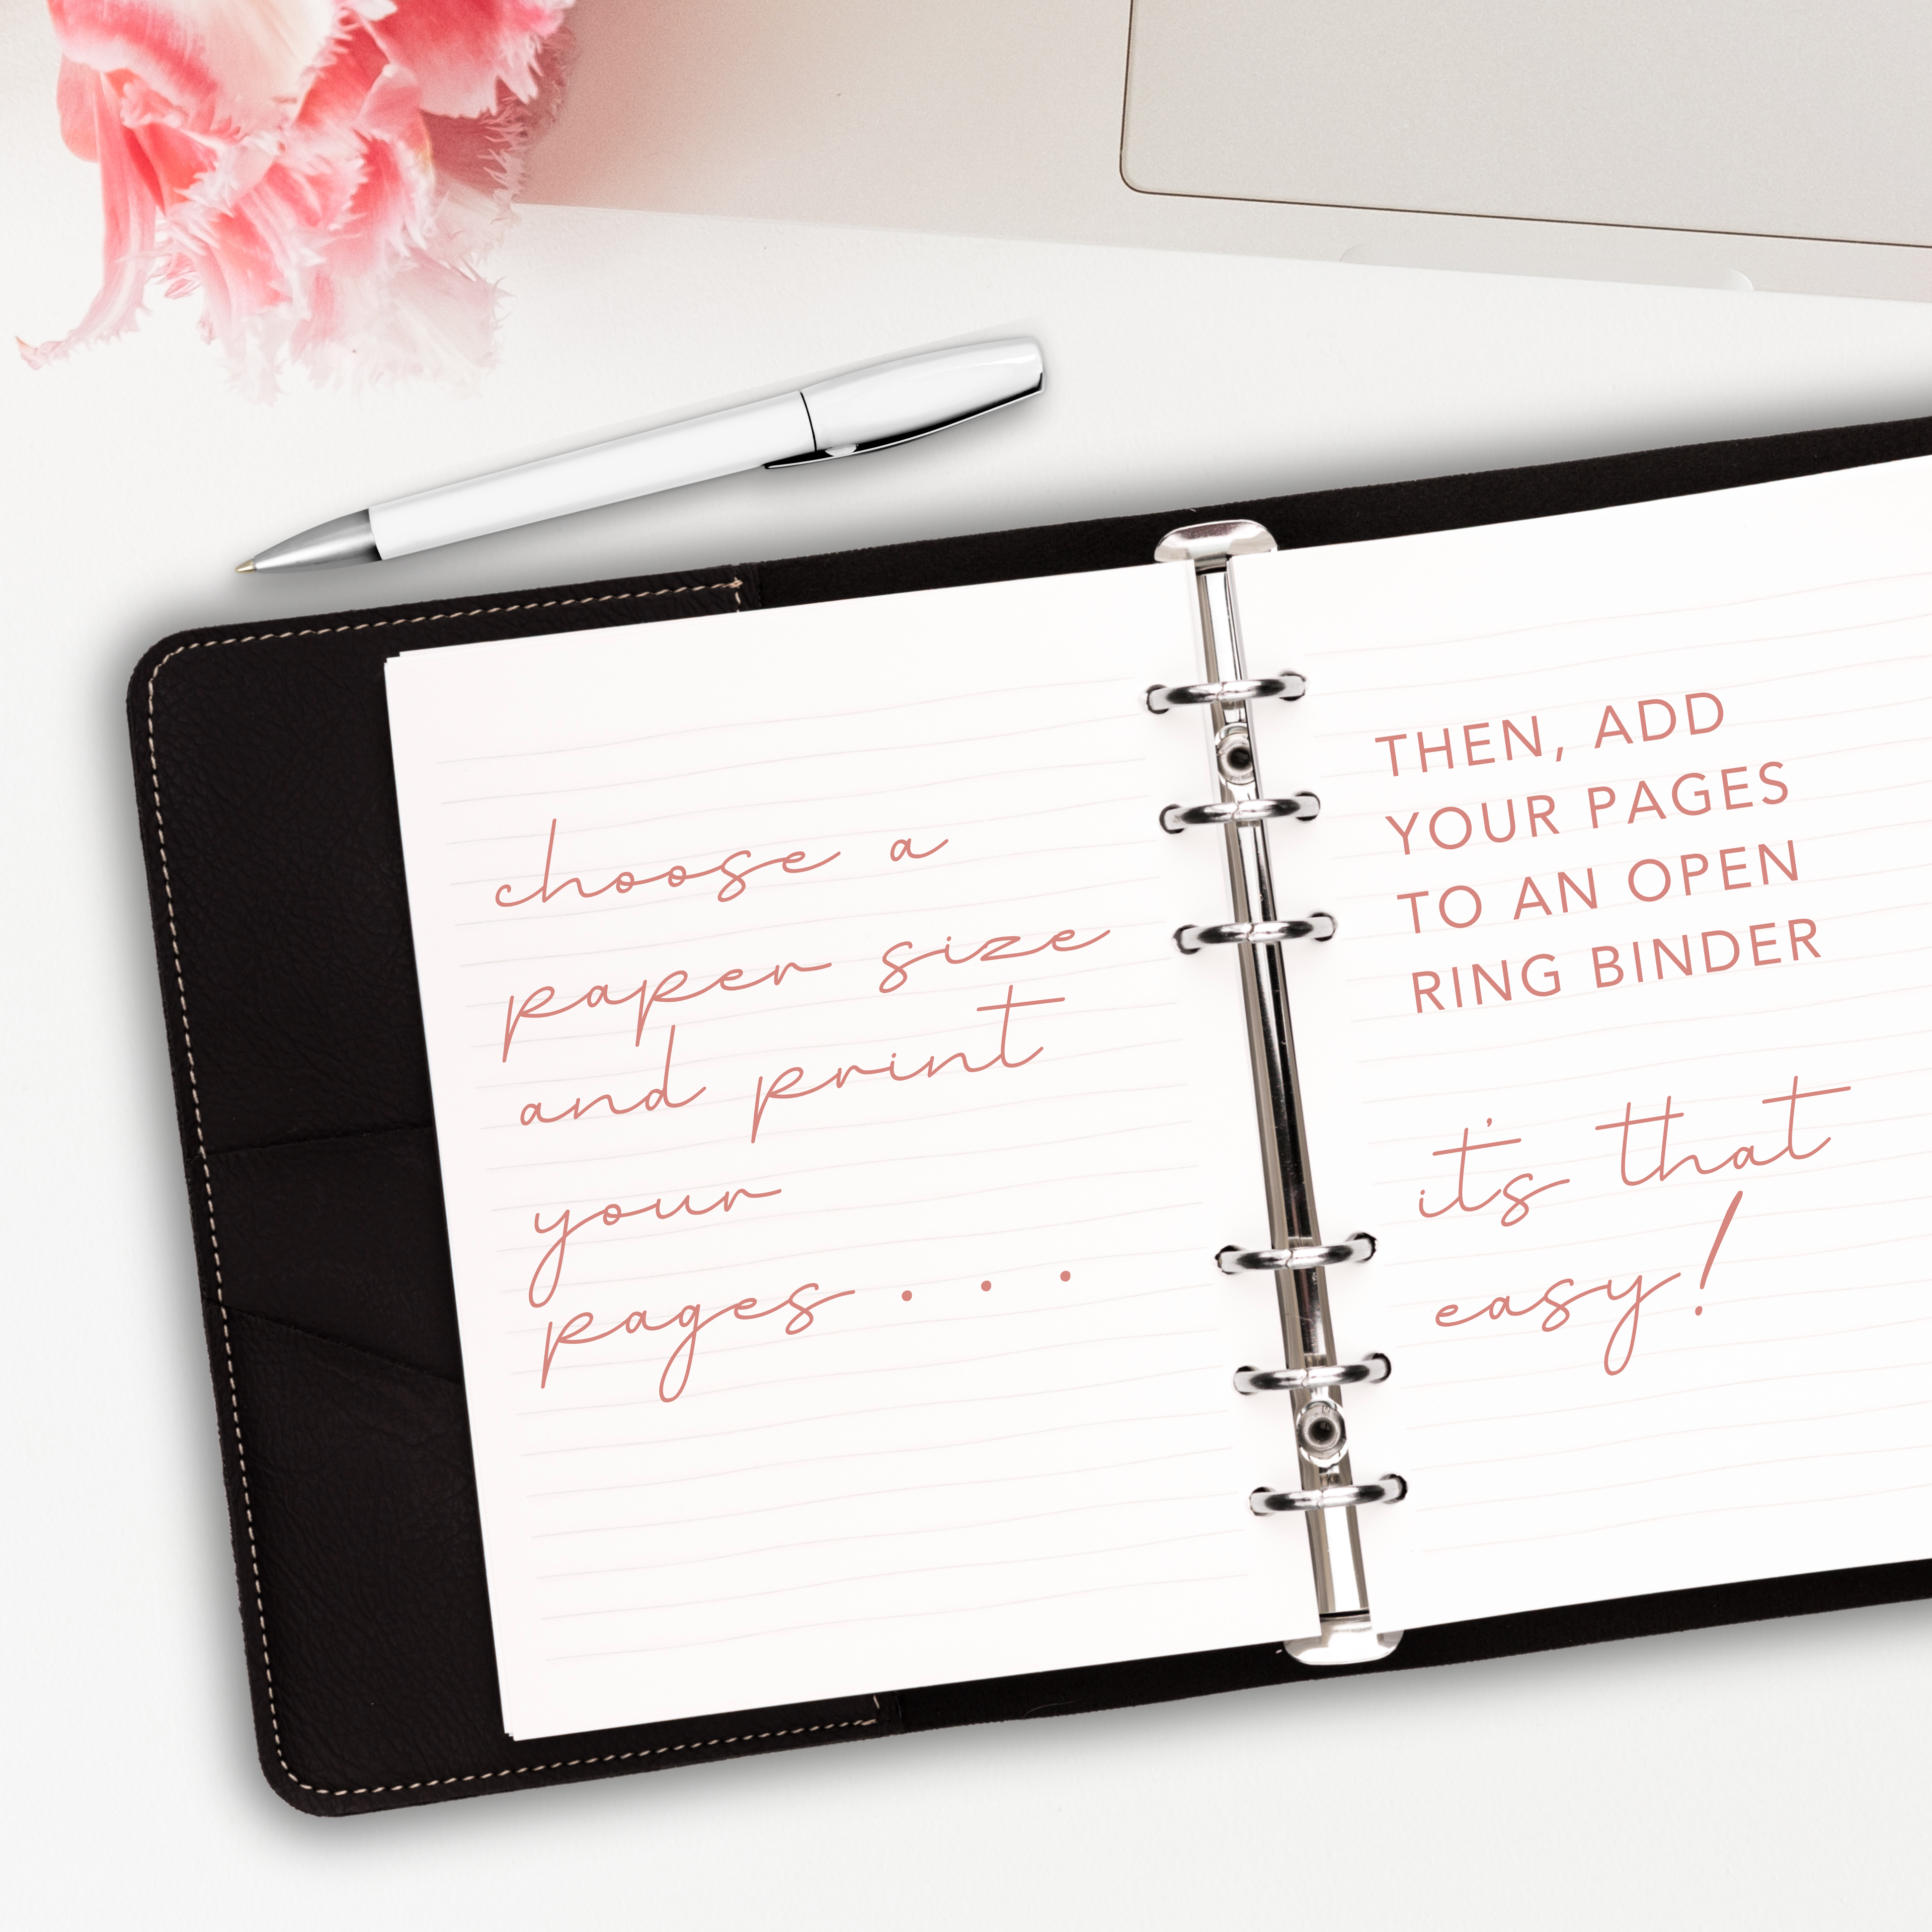 choose a
paper size
and print
your
pages . . .
THEN, ADD
YOUR PAGES
TO AN OPEN
RING BINDER
it's that
easy!